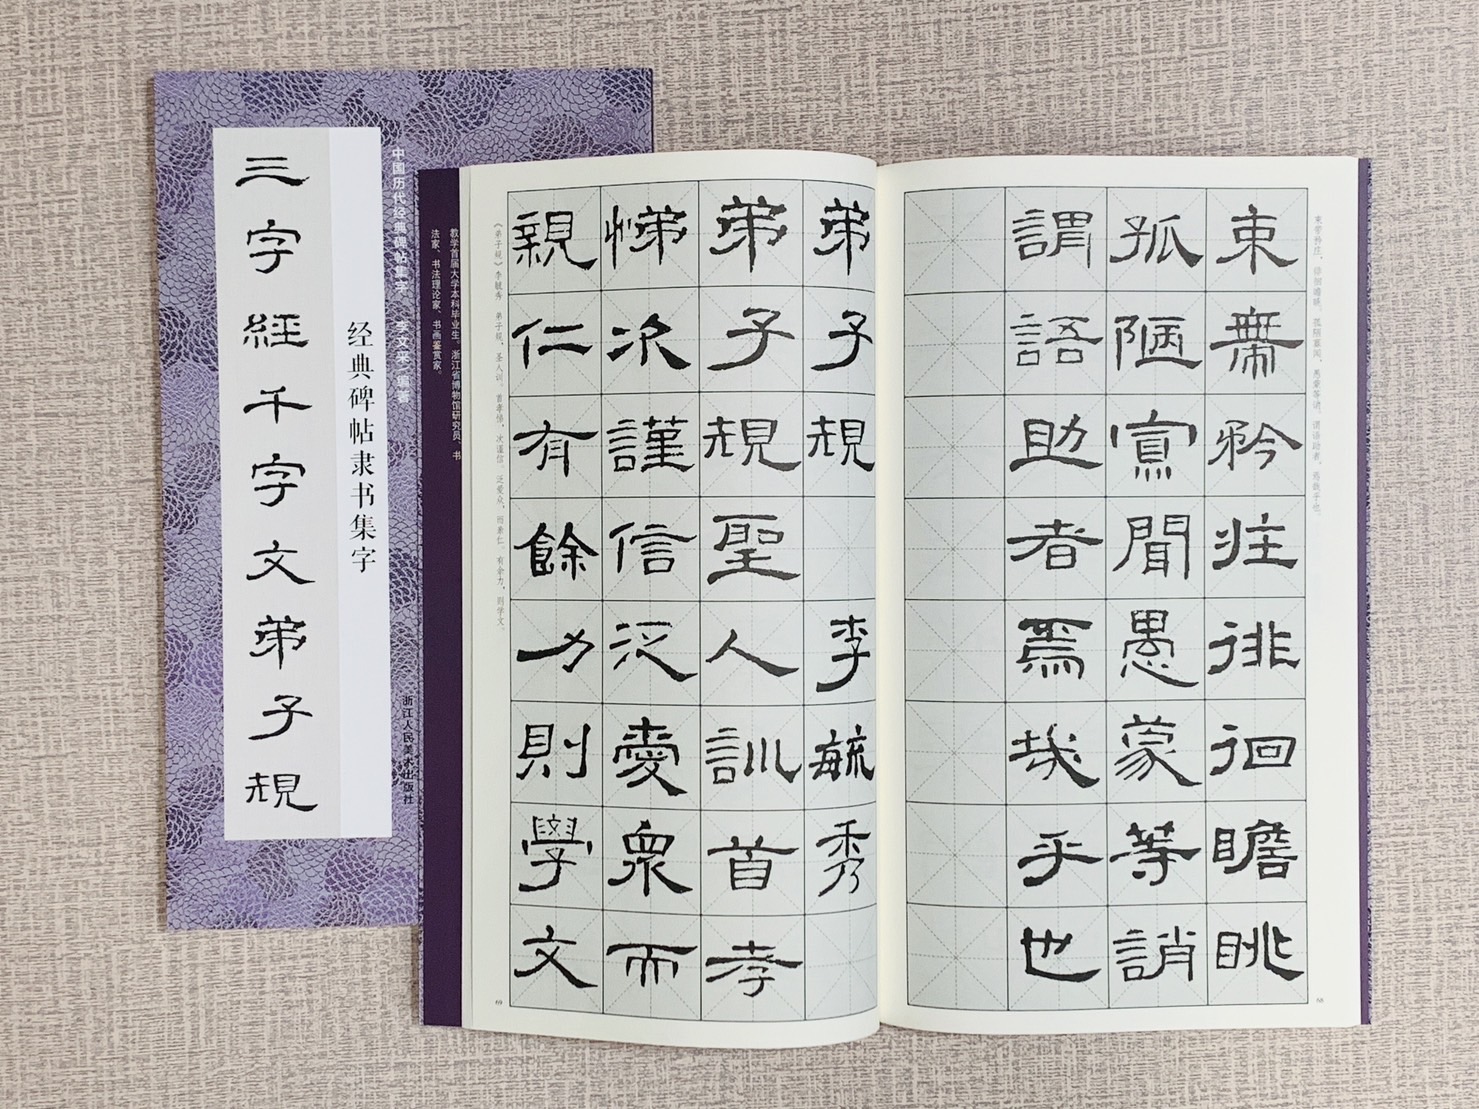 三字經千字文弟子規
经典碑帖隶书集字
中国历代经典碑帖集字 李文采 编著
浙江人民美术出版社
教学首届大学本科毕业生。浙江省博物馆研究员、书
法家、书法理论家、书画鉴赏家。
束帶矜莊徘徊瞻眺
孤陋寡聞愚蒙等誚
謂語助者焉哉乎也
束带矜庄，徘徊瞻眺。孤陋寡闻，愚蒙等诮。谓语助者，焉哉乎也。
68
弟子規 李毓秀
弟子規聖人訓首孝
悌次謹信汎愛眾而
親仁有餘力則學文
《弟子规》李毓秀 弟子规，圣人训。首孝悌，次谨信。泛爱众，而亲仁。有余力，则学文。
69